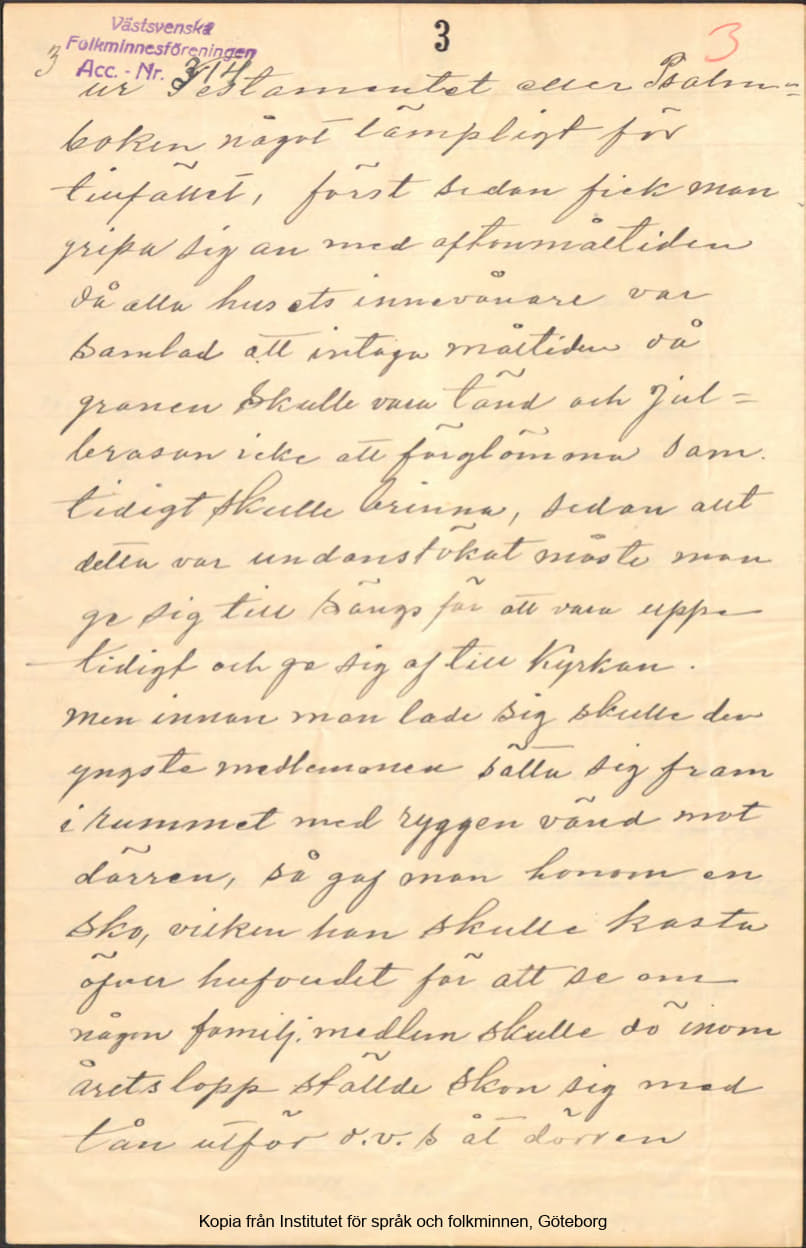 Västsvenska
Folkminnesföreningen
Acc. - Nr. 314
3
3
3
ur Testamentet eller Psalm=
boken något lämpligt för
tillfället, först sedan fick man
gripa sig an med aftonmåltiden
då alla husets innevånare var
samlad att intaga måltiden då
granen skulle vara tänd och Jul=
brasan icke att förglömma sam
tidigt skulle brinna, sedan allt
detta var undanstökat måste man
ge sig till sängs för att vara uppe
tidigt och ge sig af till Kyrkan.
men innan man lade sig skulle den
yngste medlemmen sätta sig fram
i rummet med ryggen vänd mot
dörren, så gaf man honom en
sko, vilken han skulle kasta
öfver hufvudet för att se om
någon familj.medlem skulle dö inom
årets lopp ställde skon sig med
tån utför d.v.s åt dörren
Kopia från Institutet för språk och folkminnen, Göteborg